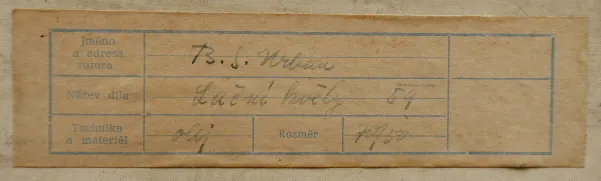 Jméno
a adresa
autora
B. S. Urban
Název díla
Luční květy 54
Technika
a materiál
olej
Rozměr